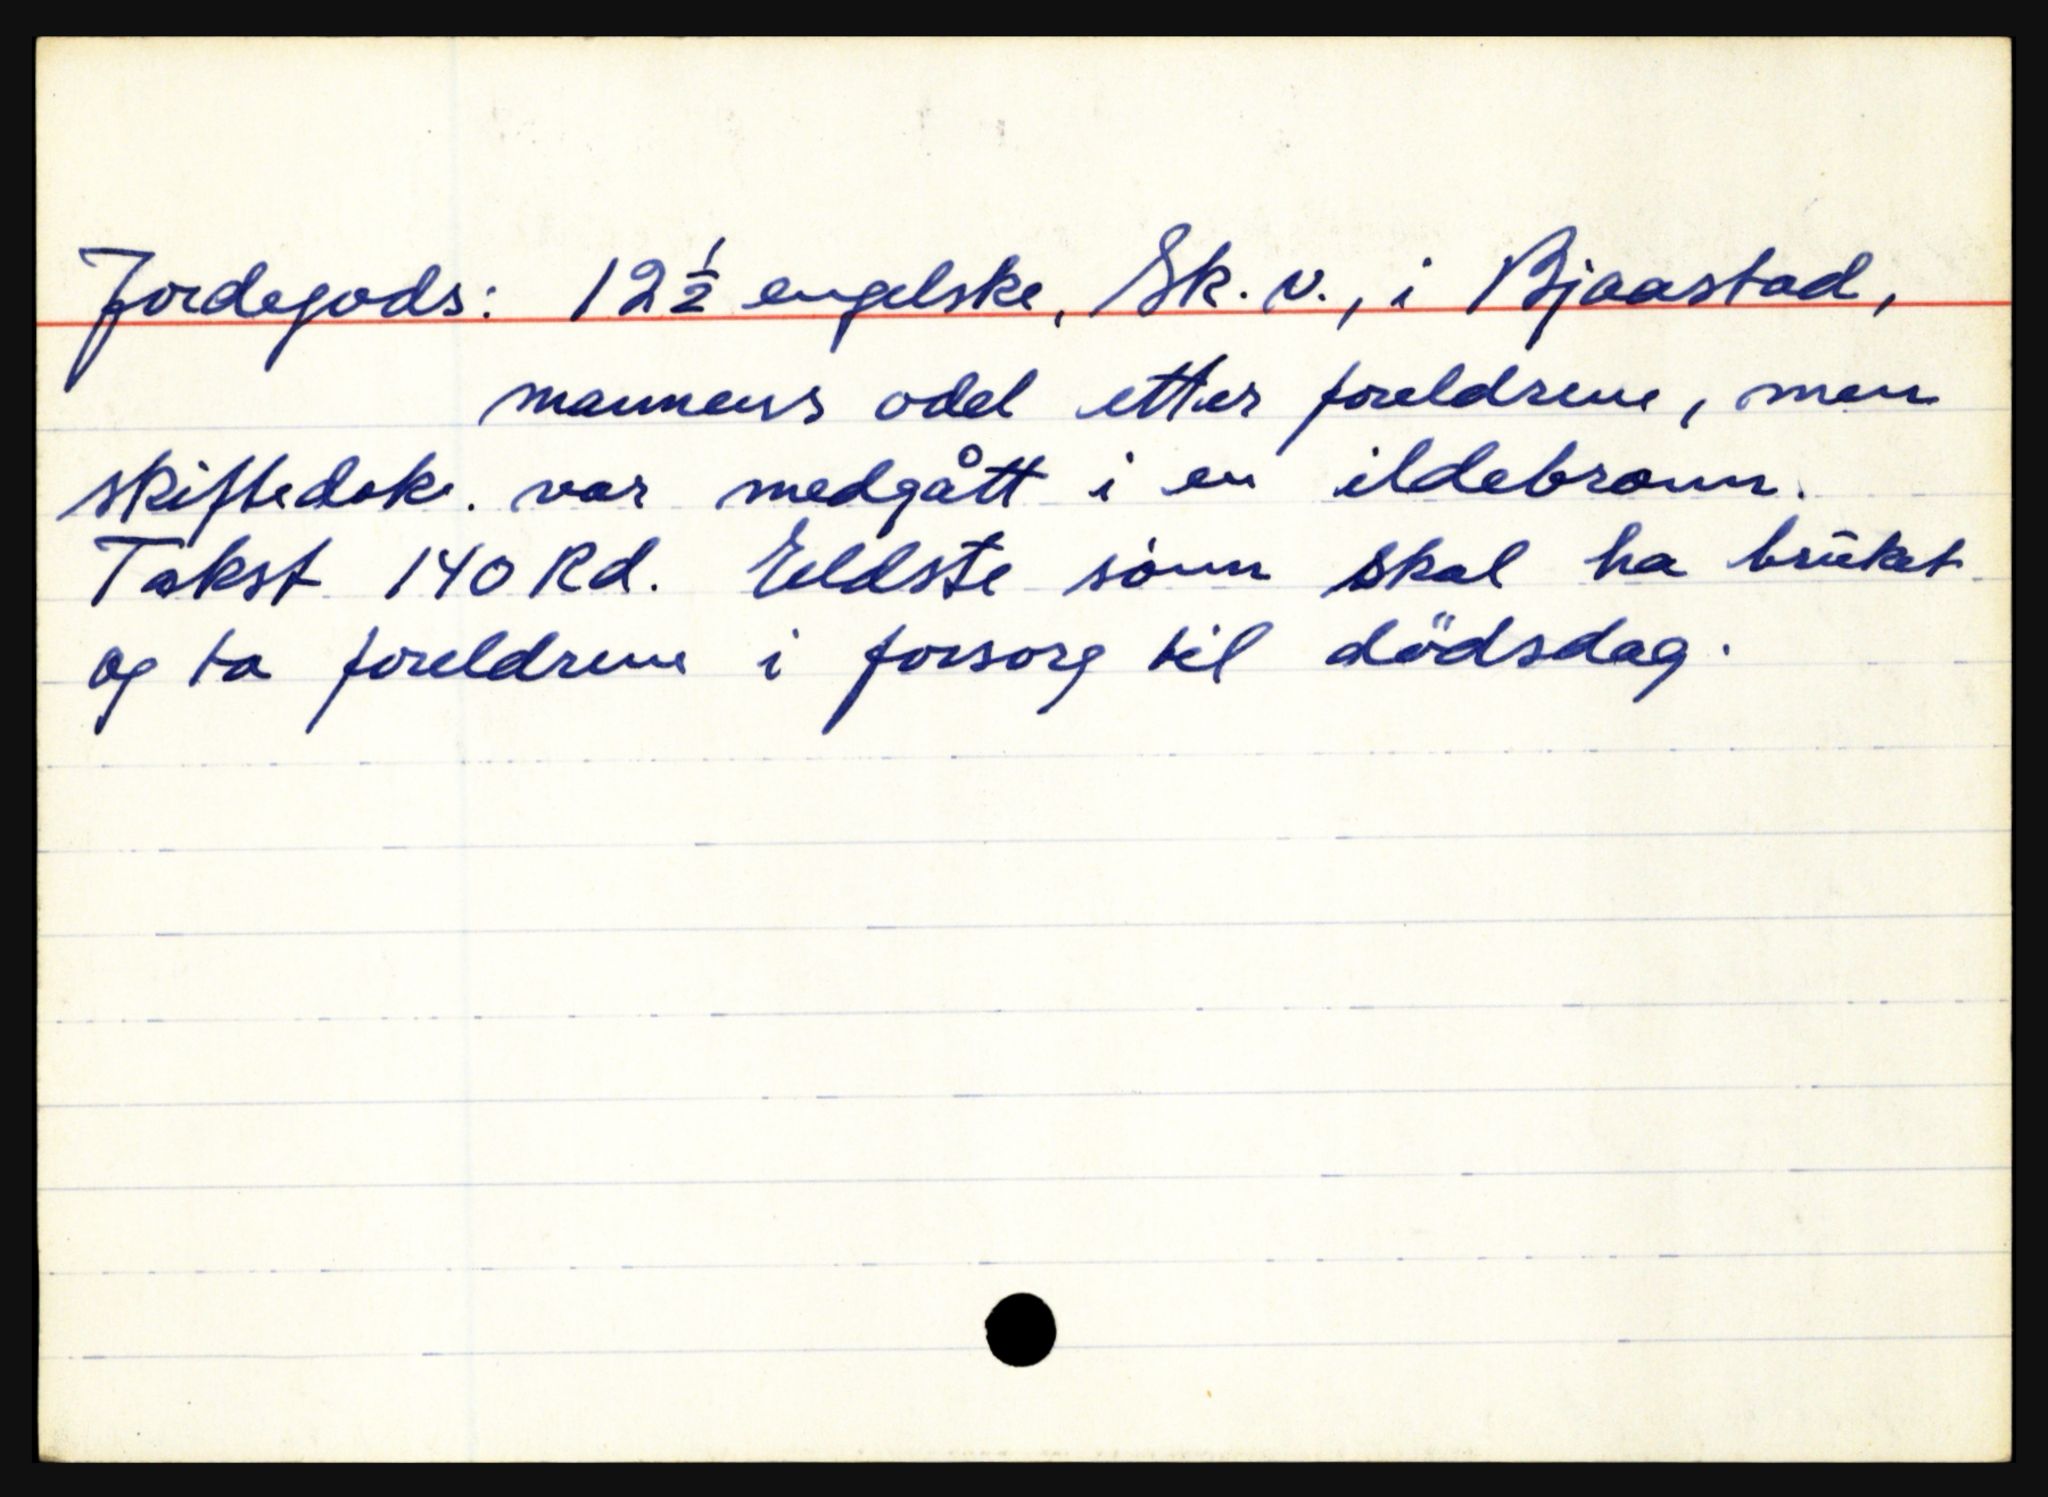 Jordegods: 12½ engelske, Sk. v., i Bjaastad,
mannens odel etter foreldrene, men
skiftedok. var medgått i en ildebrann.
Takst 140 Rd. Eeldste sönn skal ha brüket
og ta foreldrene i forsorg til dödsdag.